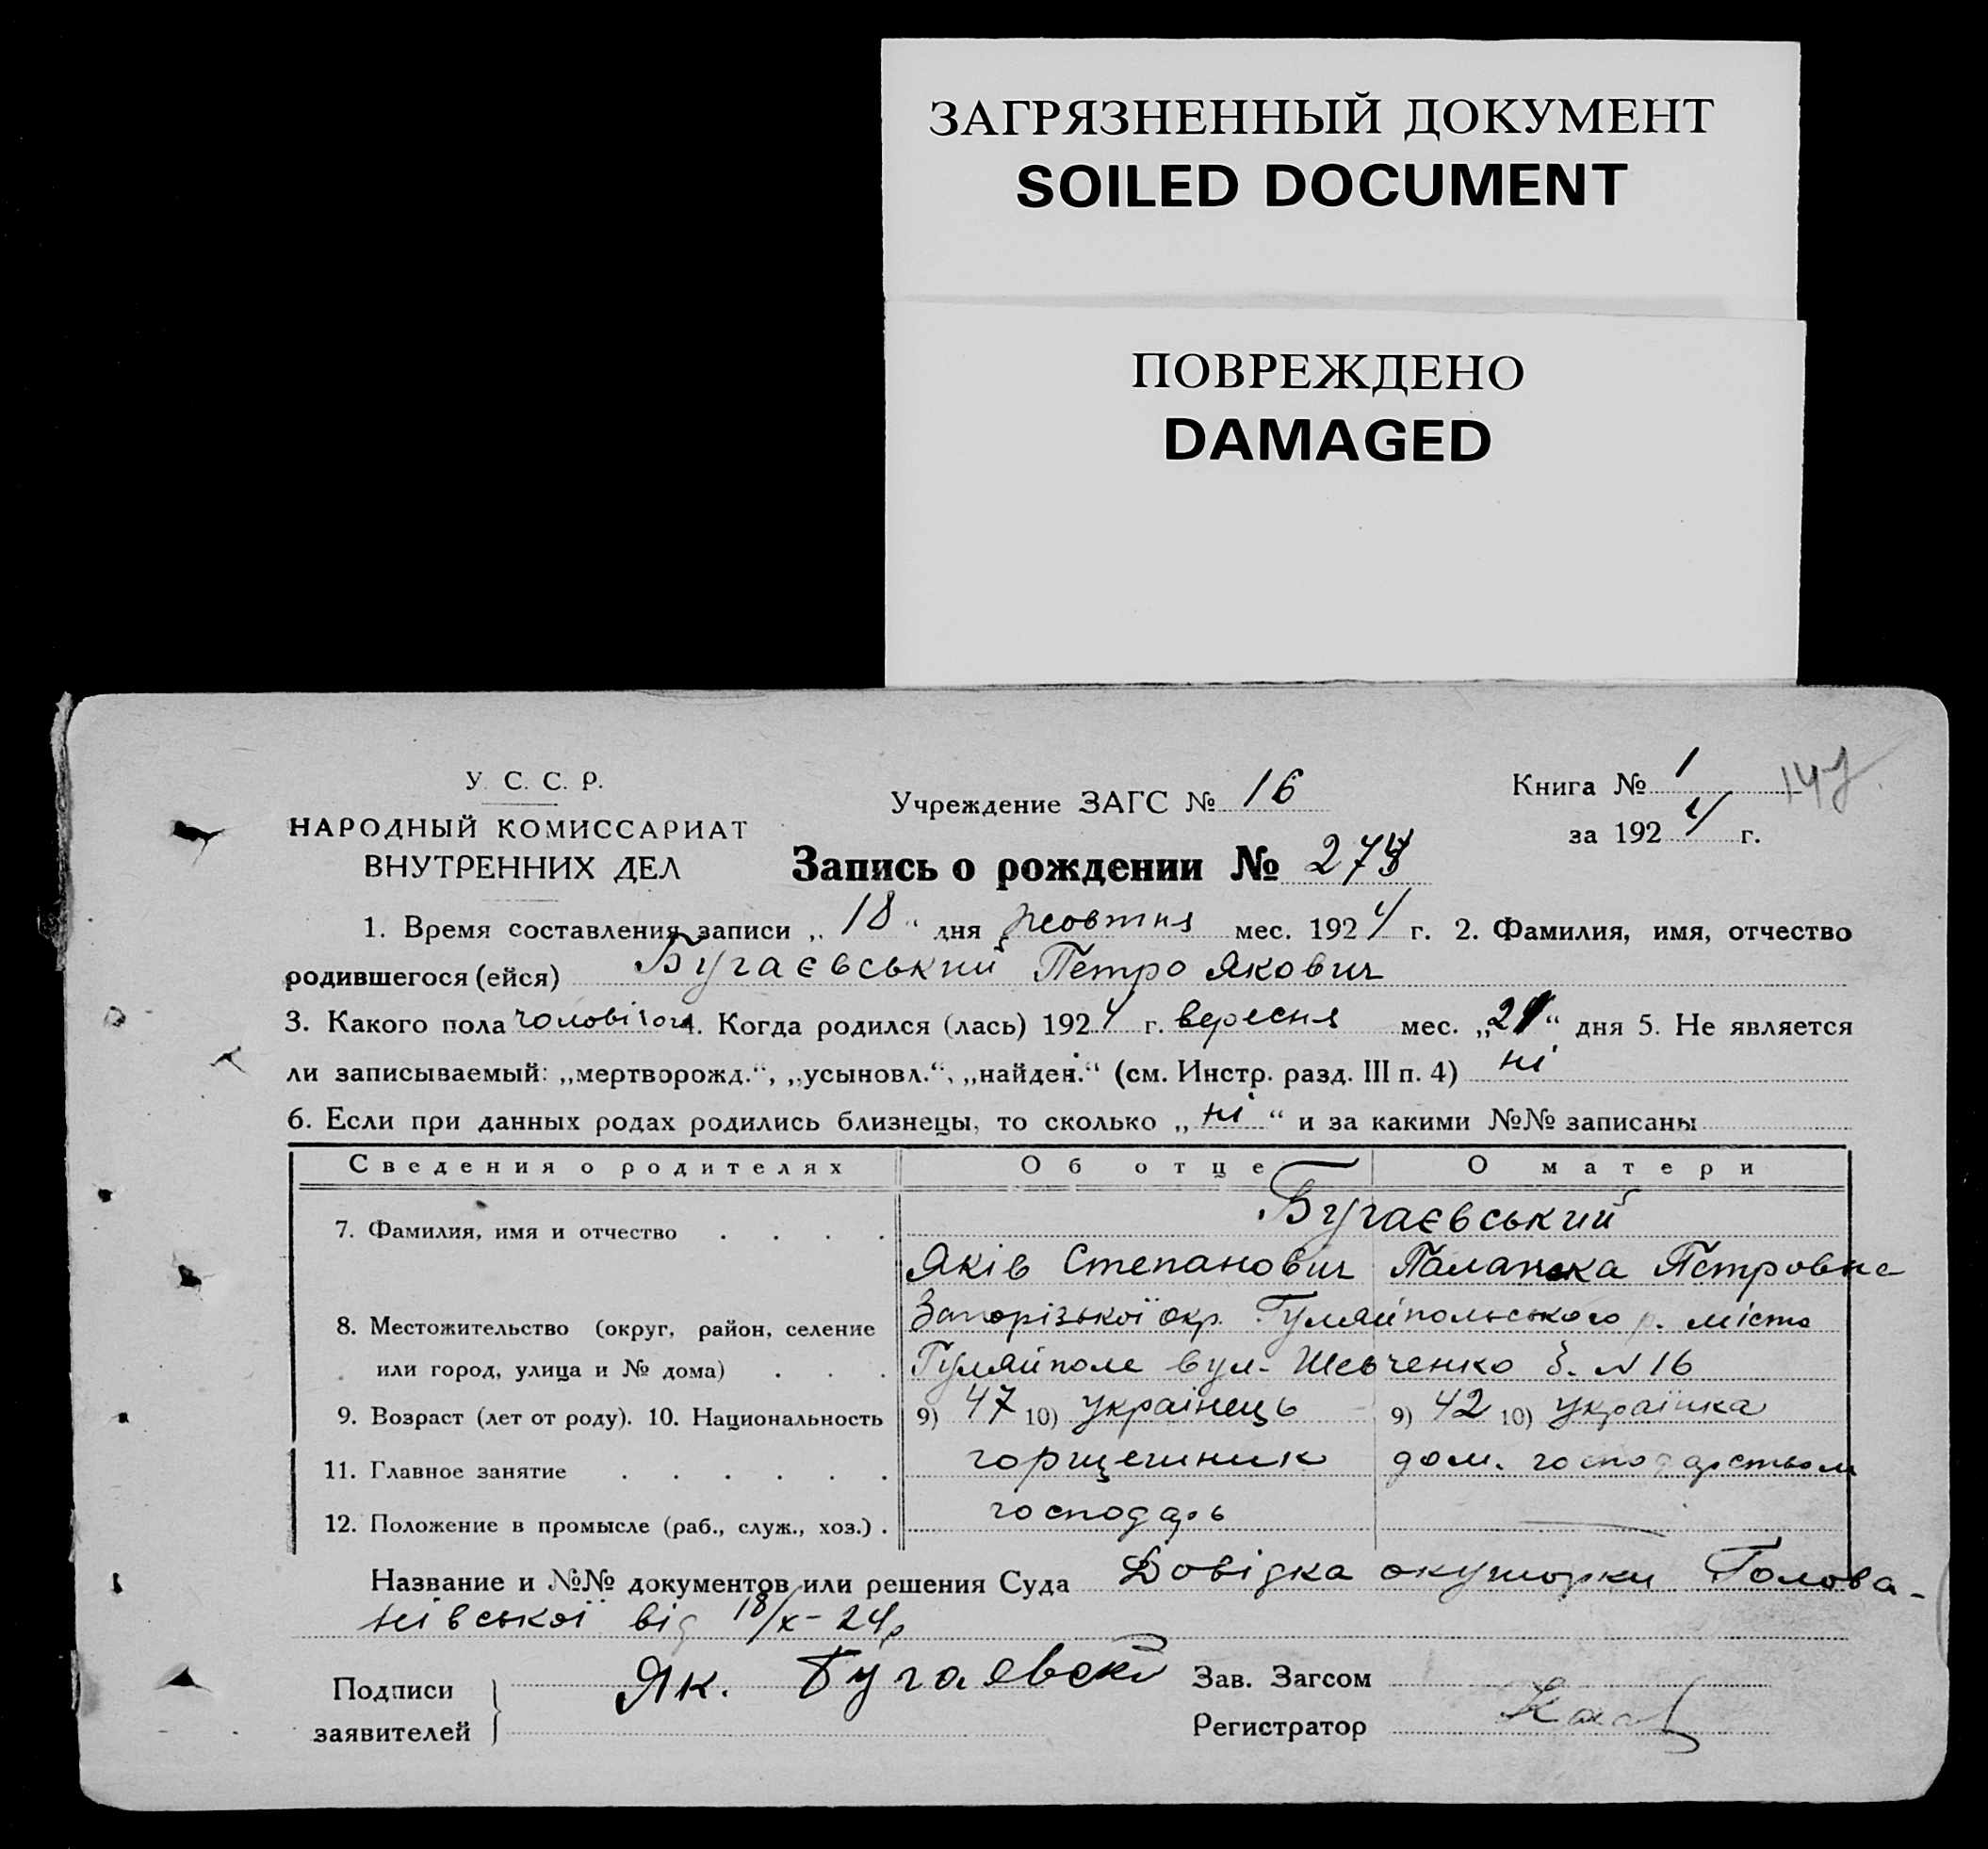 ЗАГРЯЗНЕННЫЙ ДОКУМЕНТ
SOILED DOCUMENT
ПОВРЕЖДЕНО
DAMAGED
У. С. С. Р.
НАРОДНЫЙ КОМИССАРИАТ
ВНУТРЕННИХ ДЕЛ
Учреждение ЗАГС № 16
Книга № 1
за 1924 г.
Запись о рождении №
1. Время составления записи „18“ дня жовтня мес. 1924 г. 2. Фамилия, имя, отчество
родившегося (ейся) Бугаєвський Петро Якович
3. Какого пола чоловічог 4. Когда родился (лась) 1924 г. вересня мес. „21“ дня 5. Не является
ли записываемый: „мертворожд.“, „усыновл.“, „найден.“ (см. Инстр. разд. III п. 4) ні
6. Если при данных родах родились близнецы, то сколько „ні“ и за какими №№ записаны
Сведения о родителях Об отце О матери
7. Фамилия, имя и отчество Бугаєвський
Яків Степанович Палажка Петровна
8. Местожительство (округ, район, селение Запорізької окр. Гуляйпольського р. місто
или город, улица и № дома) Гуляйполе вул. Шевченко б. N 16
9. Возраст (лет от роду). 10. Национальность 9) 47 10) українець 9) 42 10) українка
11. Главное занятие горщешник дом. господарством
12. Положение в промысле (раб., служ., хоз.) господарь —
Название и №№ документов или решения Суда Довідка окушорки Голова-
нівської від 18/X-24р
Подписи заявителей Як. Бугаевски
Зав. Загсом
Регистратор